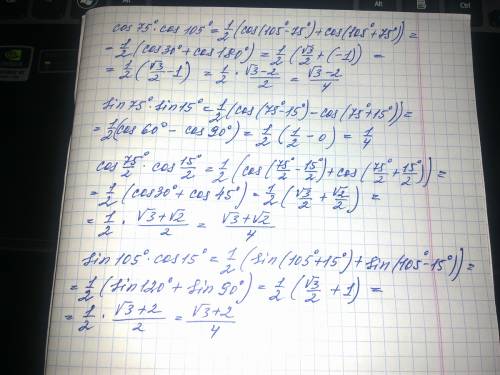 cos75°·cos105°=1/2(cos(105°-75°)+cos(105°+75°))=
=1/2(cos30°+cos180°)=1/2(√3/2+(-1))=
=1/2(√3/2-1)=1/2·(√3-2)/2=(√3-2)/4
sin75°·sin15°=1/2(cos(75°-15°)-cos(75°+15°))=
=1/2(cos60°-cos90°)=1/2(1/2-0)=1/4
cos75°/2·cos15°/2=1/2(cos(75°/2-15°/2)+cos(75°/2+15°/2))=
=1/2(cos30°+cos45°)=1/2(√3/2+√2/2)=
=1/2·(√3+√2)/2=(√3+√2)/4
sin105°·cos15°=1/2(sin(105°+15°)+sin(105°-15°))=
=1/2(sin120°+sin90°)=1/2(√3/2+1)=
=1/2·(√3+2)/2=(√3+2)/4